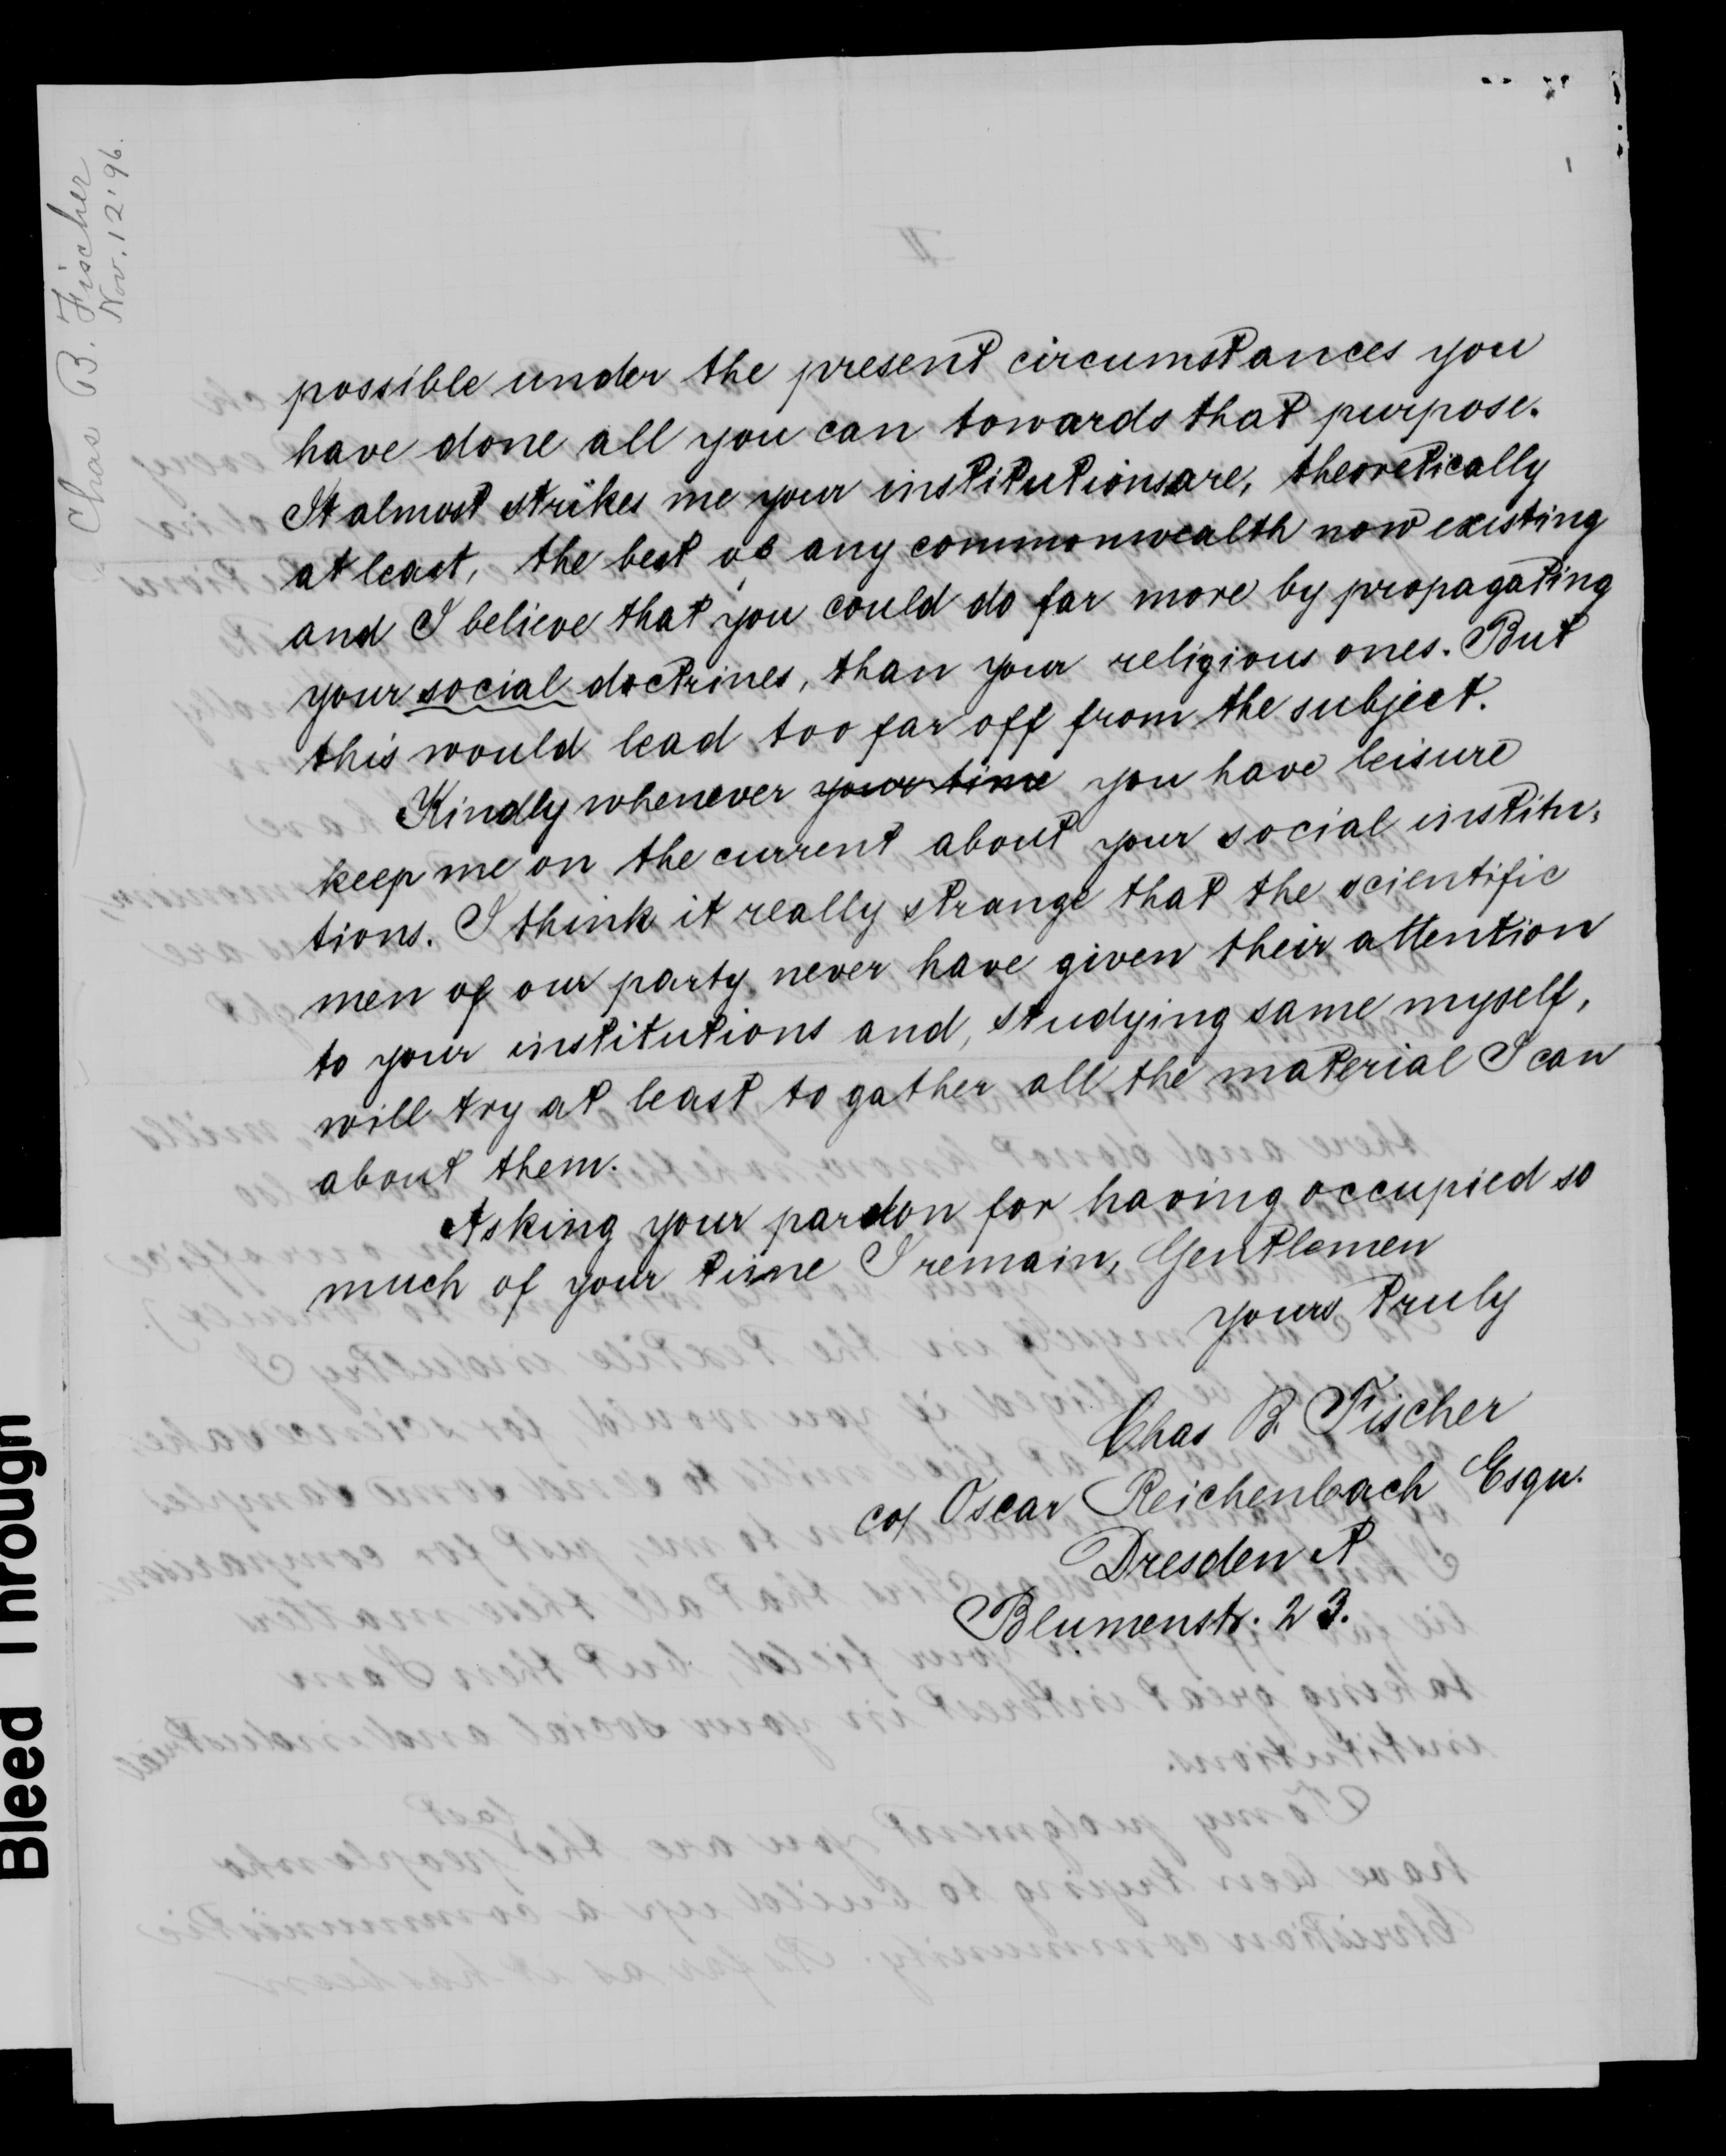 Chas B. Fischer
Nov. 12 '96.
possible under the present circumstances you
have done all you can towards that purpose.
It almost strikes me your institutions are, theoretically
at least, the best of any commonwealth now existing
and I believe that you could do far more by propagating
your social doctrines, than your religious ones. But
this would lead too far off from the subject.
Kindly whenever your time you have leisure
keep me on the current about your social institu-
tions. I think it really strange that the scientific
men of our party never have given their attention
to your institutions and, studying same myself,
will try at least to gather all the material I can
about them.
Asking your pardon for having occupied so
much of your time I remain, Gentlemen
yours truly
Chas B. Fischer
co/ Oscar Reichenbach Esqu.
Dresden A
Blumenstr. 23.
Bleed Through